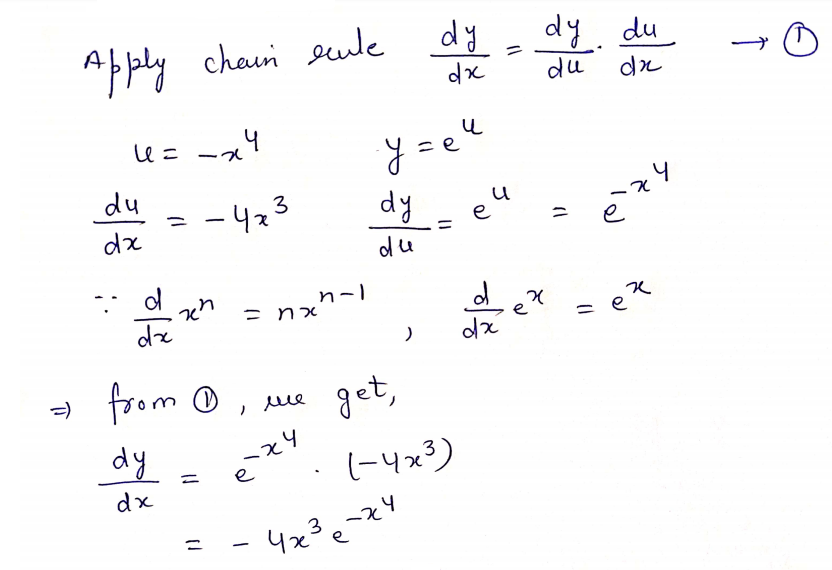 Apply chain rule dy/dx = dy/du · du/dx → ①
u = -x⁴ y = eᵘ
du/dx = -4x³ dy/du = eᵘ = e^(-x⁴)
∵ d/dx xⁿ = nxⁿ⁻¹ , d/dx eˣ = eˣ
⇒ from ①, we get,
dy/dx = e^(-x⁴) · (-4x³)
= -4x³ e^(-x⁴)